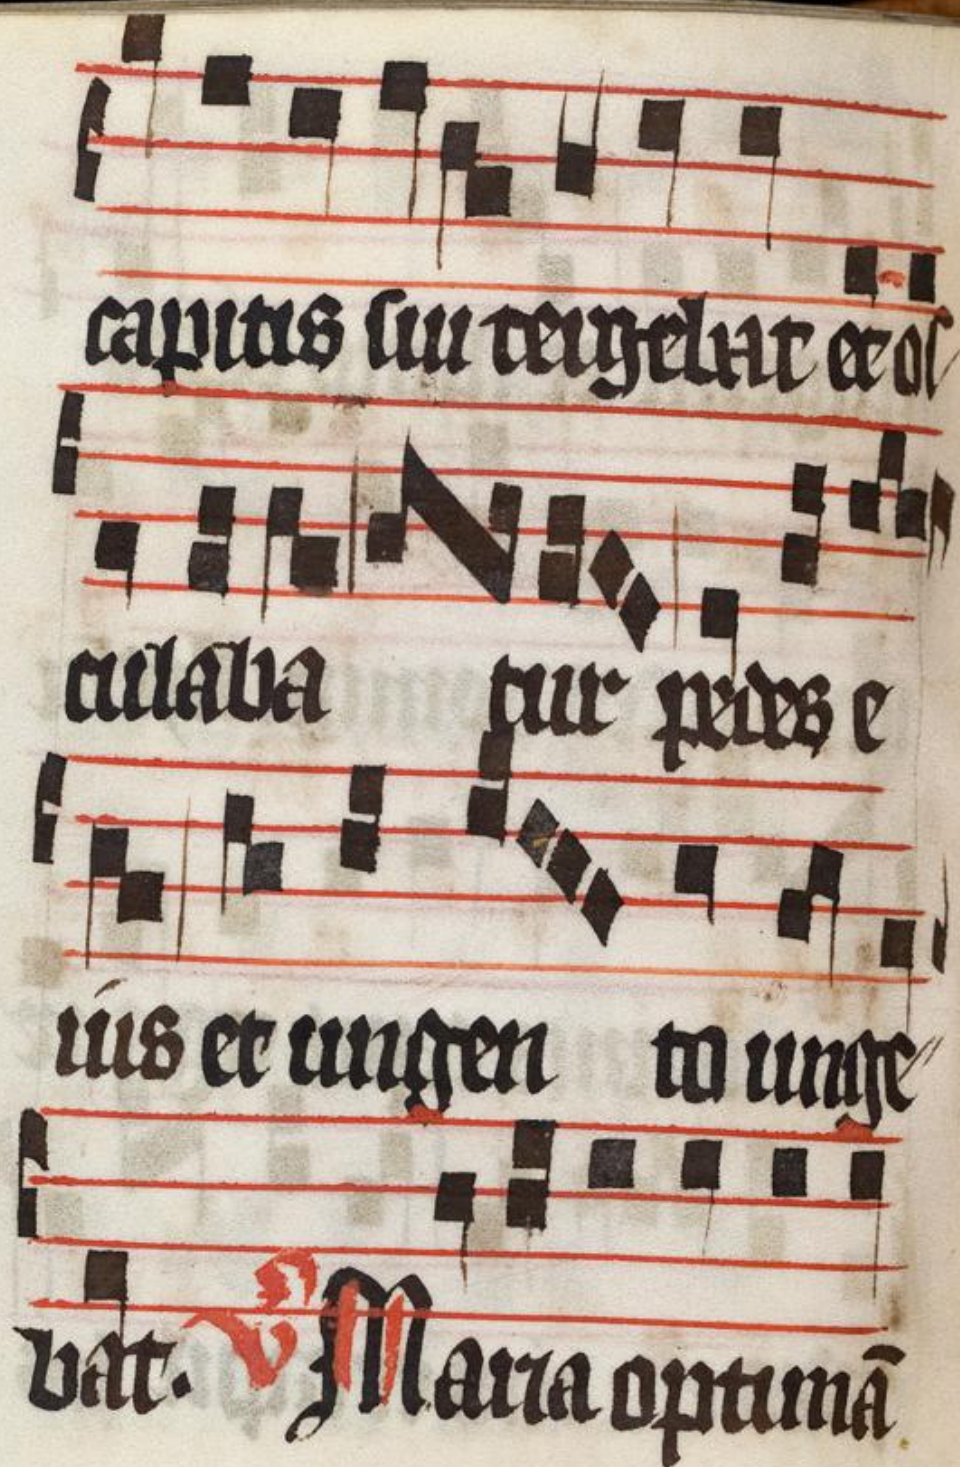 capitis sui tergebat et os
culaba tur pedes e
ius et ungen to unge
bat. V Maria optimā